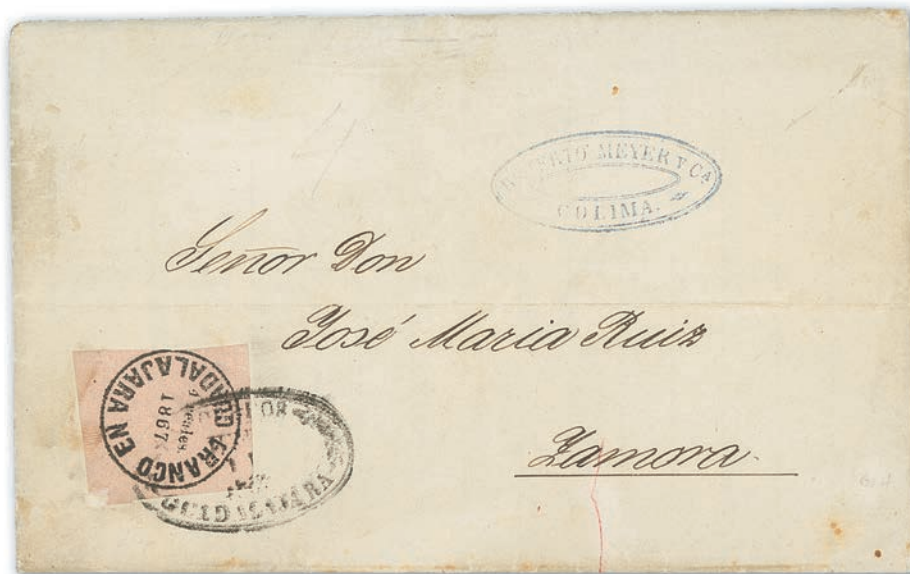 MEYER Y CA
COLIMA.
Señor Don
José Maria Ruiz
Zamora
FRANCO EN GUADALAJARA
reales.
1867.